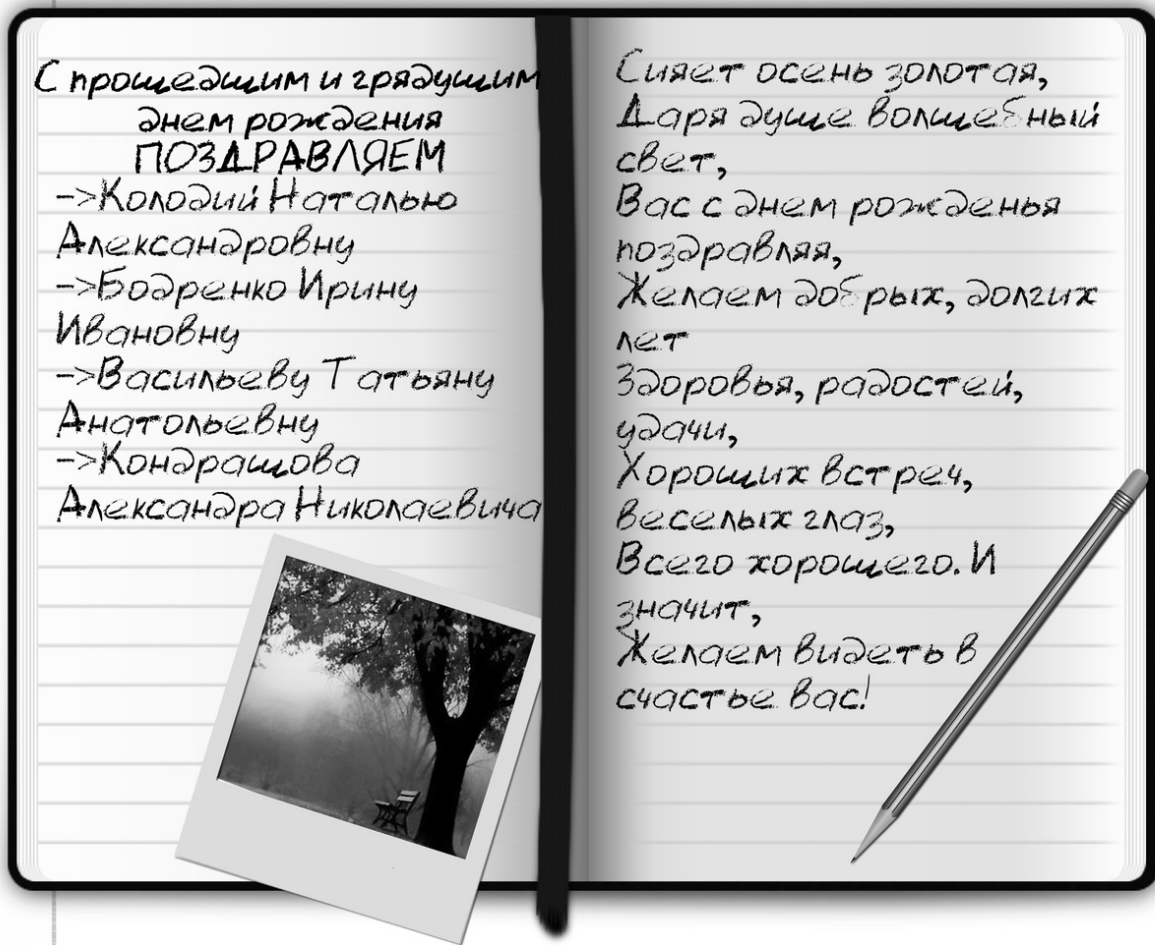 С прошедшим и грядущим
днем рождения
ПОЗДРАВЛЯЕМ
->Колодий Наталью
Александровну
->Бодренко Ирину
Ивановну
->Васильеву Татьяну
Анатольевну
->Кондрашова
Александра Николаевича
Сияет осень золотая,
Даря душе волшебный
свет,
Вас с днем рожденья
поздравляя,
Желаем добрых, долгих
лет
Здоровья, радостей,
удачи,
Хороших встреч,
веселых глаз,
Всего хорошего. И
значит,
Желаем видеть в
счастье вас!